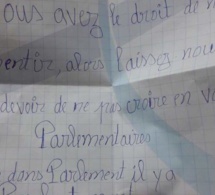 vous avez le droit de
mentir, alors laissez nou
devoir de ne pas croire en vo
Parlementaires
dans Parlement il y a